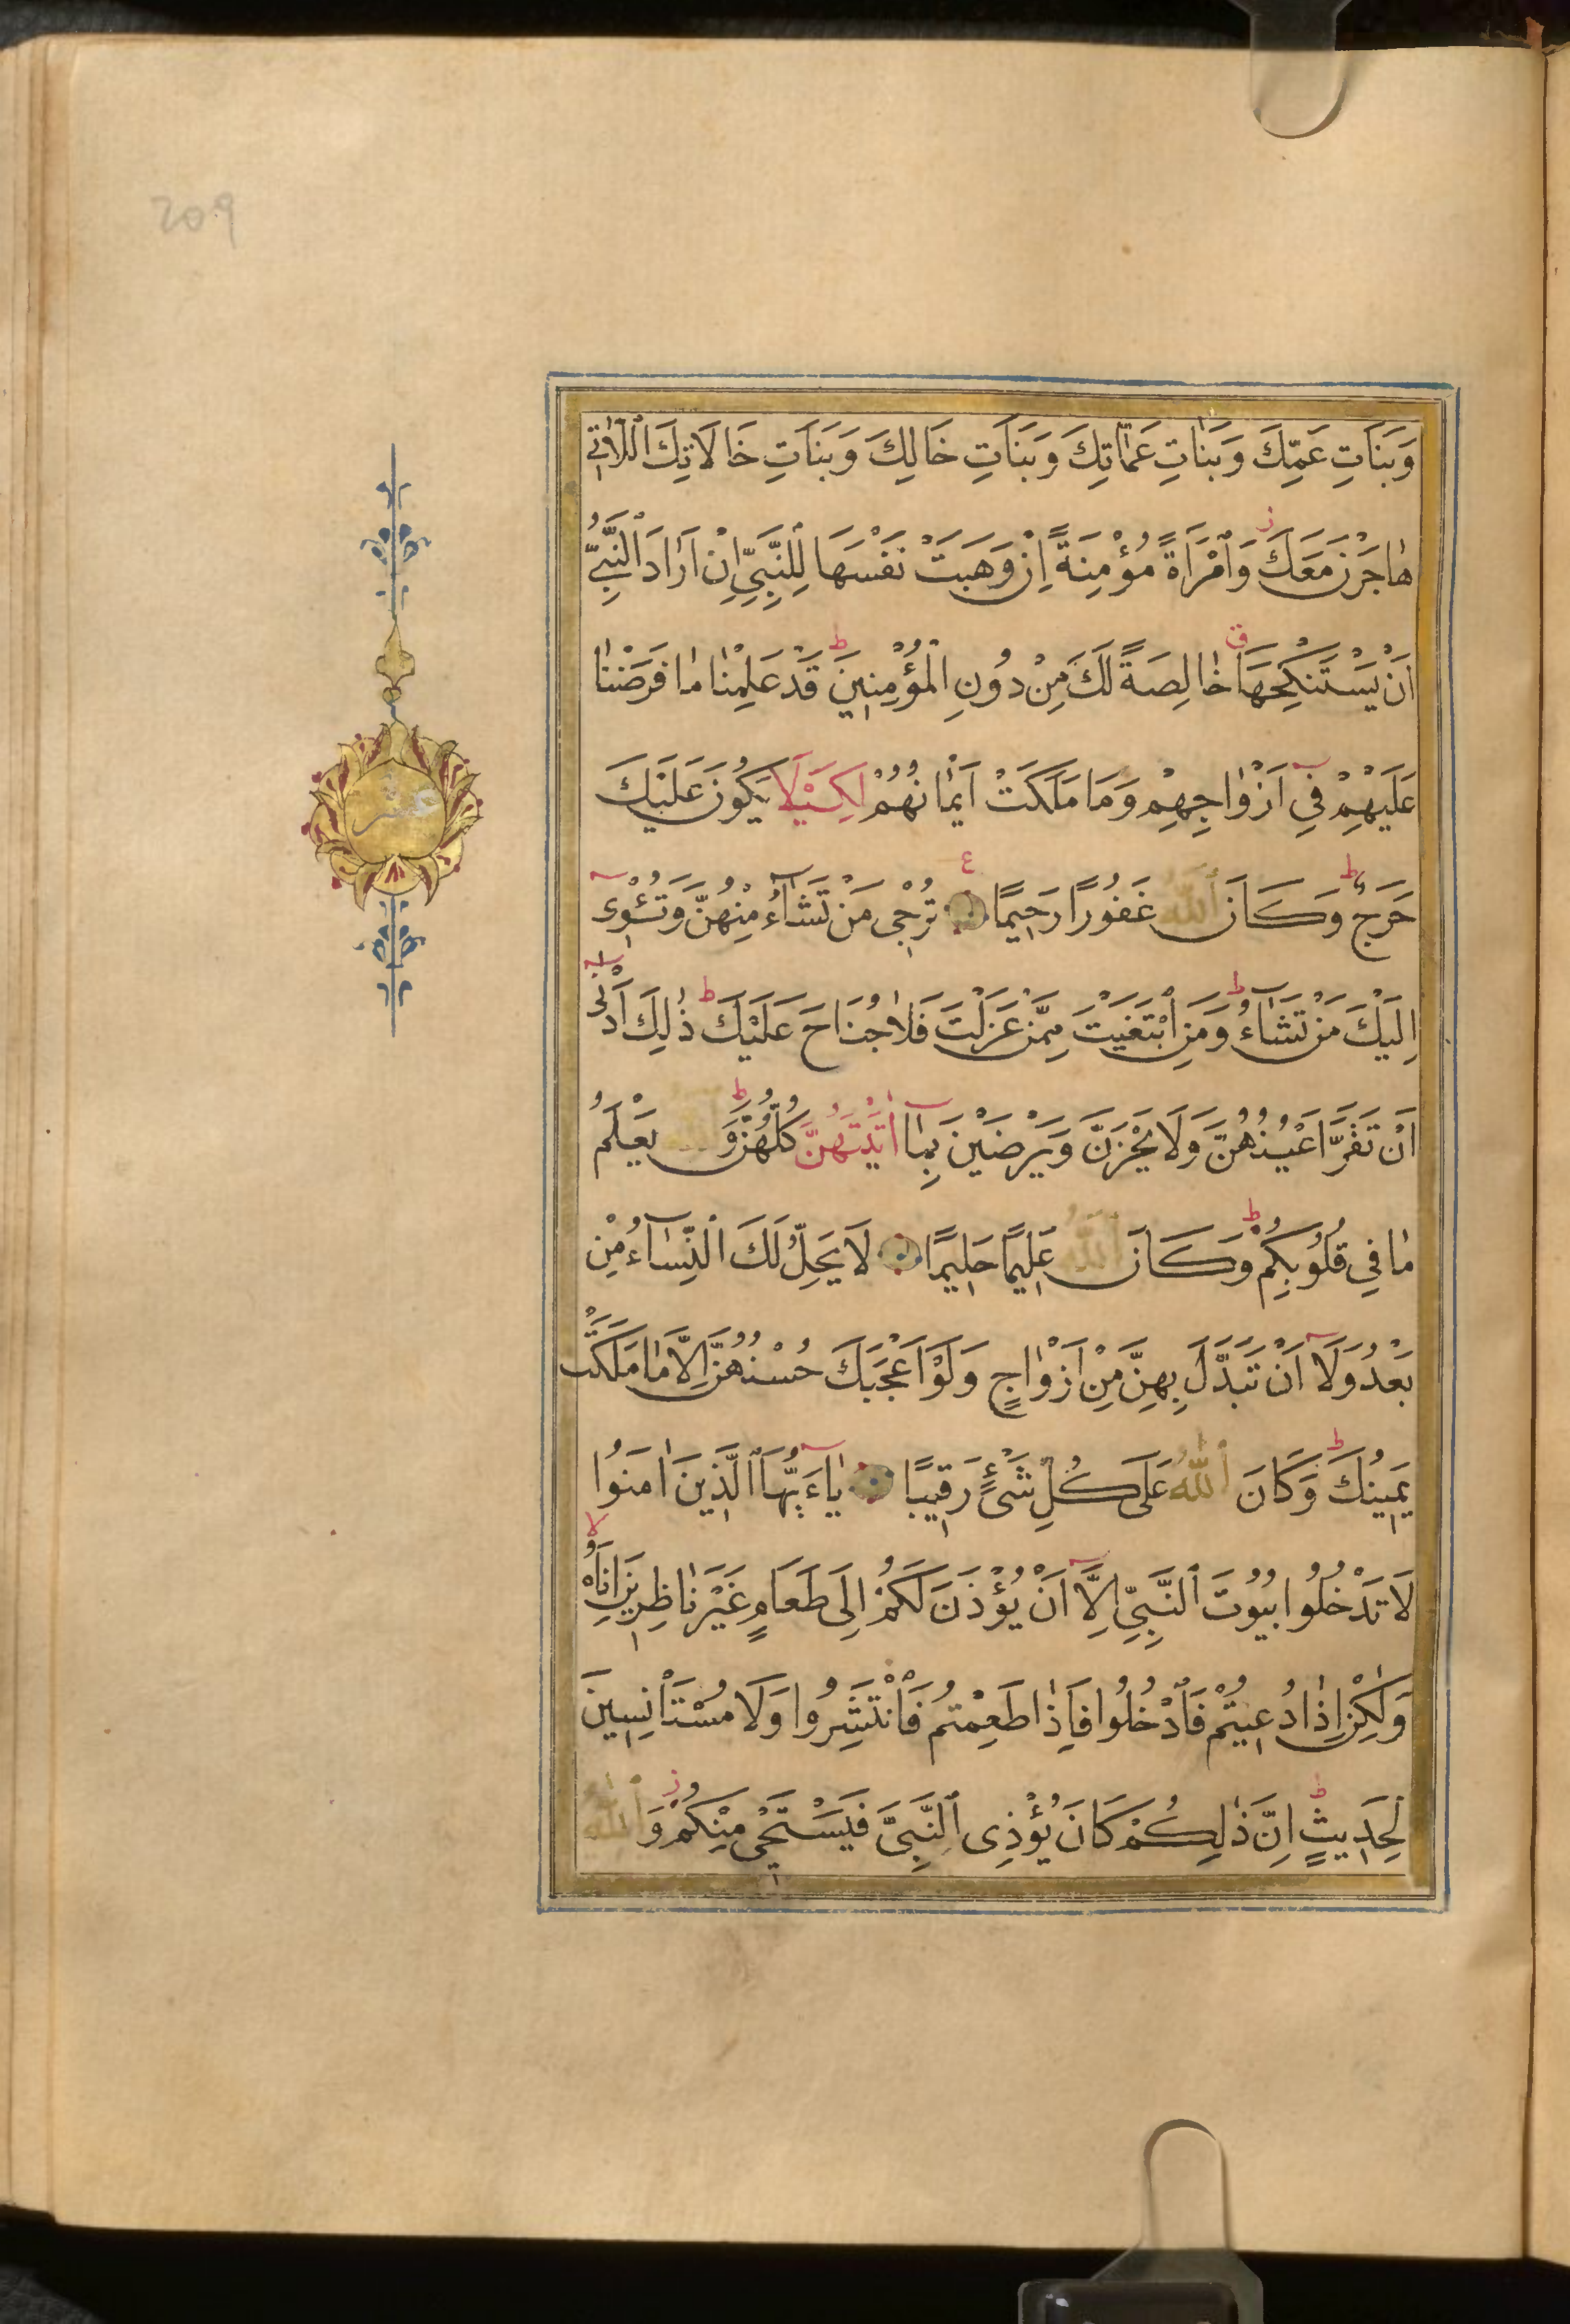 209
وَبَنَاتِ عَمِّكَ وَبَنَاتِ عَمَّاتِكَ وَبَنَاتِ خَالِكَ وَبَنَاتِ خَالَاتِكَ اللَّاتِي
هَاجَرْنَ مَعَكَ ز وَامْرَأَةً مُؤْمِنَةً اِنْ وَهَبَتْ نَفْسَهَا لِلنَّبِيِّ اِنْ اَرَادَ النَّبِيُّ
اَنْ يَسْتَنْكِحَهَا ق خَالِصَةً لَكَ مِنْ دُونِ الْمُؤْمِنِينَ ط قَدْ عَلِمْنَا مَا فَرَضْنَا
عَلَيْهِمْ فِي اَزْوَاجِهِمْ وَمَا مَلَكَتْ اَيْمَانُهُمْ لِكَيْلَا يَكُونَ عَلَيْكَ
حَرَجٌ ط وَكَانَ اللّٰهُ غَفُورًا رَحِيمًا ع تُرْجِى مَنْ تَشَآءُ مِنْهُنَّ وَتُـْٔوِىٓ
اِلَيْكَ مَنْ تَشَآءُ ط وَمَنِ ابْتَغَيْتَ مِمَّنْ عَزَلْتَ فَلَا جُنَاحَ عَلَيْكَ ط ذٰلِكَ اَدْنٰىٓ
اَنْ تَقَرَّ اَعْيُنُهُنَّ وَلَا يَحْزَنَّ وَيَرْضَيْنَ بِمَٓا اٰتَيْتَهُنَّ كُلُّهُنَّ ط وَ يَعْلَمُ
مَا فِي قُلُوبِكُمْ ط وَكَانَ اللّٰهُ عَلِيمًا حَلِيمًا لَا يَحِلُّ لَكَ النِّسَآءُ مِنْ
بَعْدُ وَلَٓا اَنْ تَبَدَّلَ بِهِنَّ مِنْ اَزْوَاجٍ وَلَوْ اَعْجَبَكَ حُسْنُهُنَّ اِلَّا مَا مَلَكَتْ
يَمِينُكَ ط وَكَانَ اللّٰهُ عَلَى كُلِّ شَىْءٍ رَقِيبًا يَٓاءَيُّهَا الَّذِينَ اٰمَنُوا
لَا تَدْخُلُوا بُيُوتَ النَّبِيِّ اِلَّٓا اَنْ يُؤْذَنَ لَكُمْ اِلَى طَعَامٍ غَيْرَ نَاظِرِينَ اِنَاهُ لا
وَلٰكِنْ اِذَا دُعِيتُمْ فَادْخُلُوا فَاِذَا طَعِمْتُمْ فَانْتَشِرُوا وَلَا مُسْتَاْنِسِينَ
لِحَدِيثٍ ط اِنَّ ذٰلِكُمْ كَانَ يُؤْذِى النَّبِيَّ فَيَسْتَحْيِ مِنْكُمْ ز وَاللّٰهُ
عشر